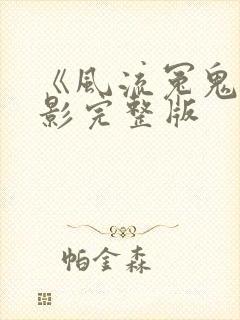 《风流冤鬼
影完整版
帕金森